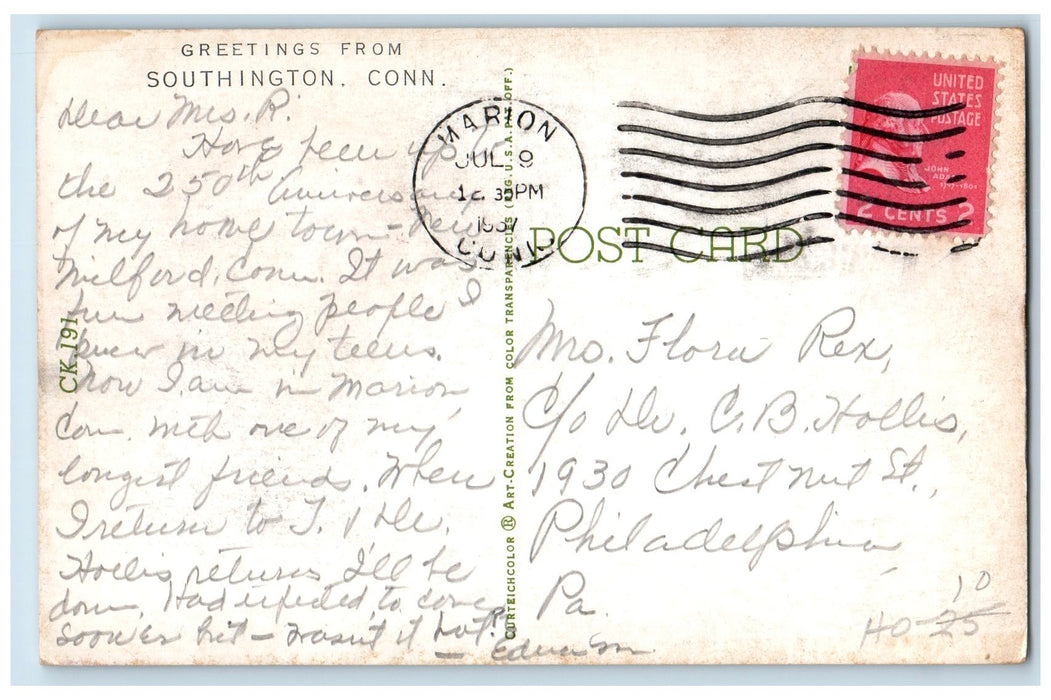 GREETINGS FROM
SOUTHINGTON, CONN.
Dear Mrs. R.
Have been up to
the 250th Anniversary
of my home town - New
Milford, Conn. It was
fun meeting people I
knew in my teens.
Now I am in Marion,
Con. with one of my
longest friends. When
I return to T. & Dr.
Hollis returns I'll be
down. Had expected to come
sooner but - wasn't it hot?
- Edna M
CK 191
CURTEICHCOLOR ® ART-CREATION FROM COLOR TRANSPARENCIES (REG. U.S.A. PAT. OFF.)
MARION
JUL 9
PM
CONN
UNITED
STATES
POSTAGE
JOHN
ADAMS
2 CENTS 2
POST CARD
Mrs. Flora Rex,
c/o Dr. C. B. Hollis,
1930 Chestnut St.,
Philadelphia,
Pa.
10
HO-25